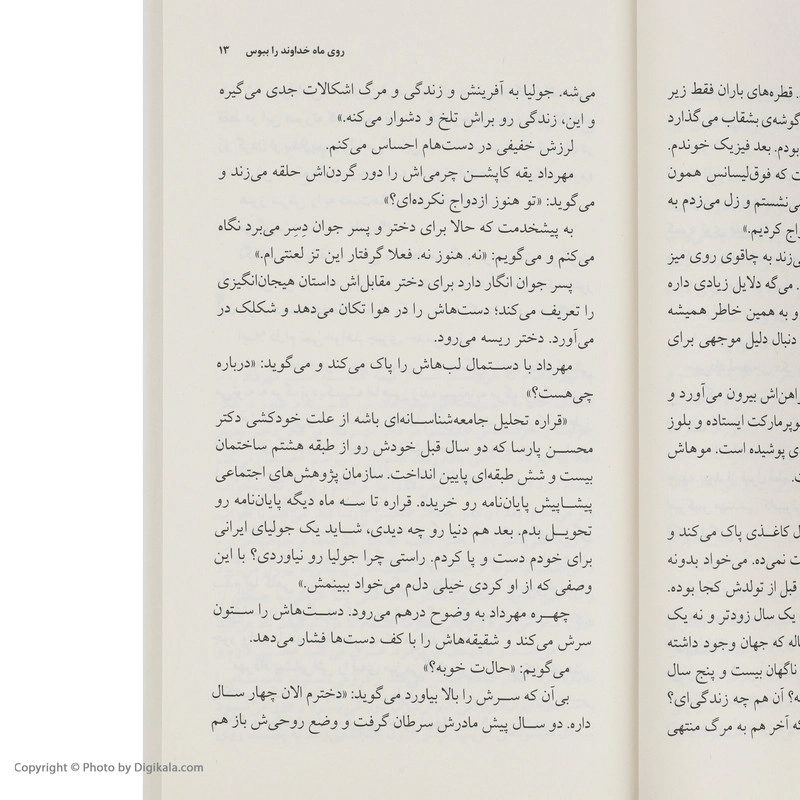 روی ماه خداوند را ببوس ۱۳
می‌شه. جولیا به آفرینش و زندگی و مرگ اشکالات جدی می‌گیره
و این، زندگی رو براش تلخ و دشوار می‌کنه.»
لرزش خفیفی در دست‌هام احساس می‌کنم.
مهرداد یقه کاپشن چرمی‌اش را دور گردن‌اش حلقه می‌زند و
می‌گوید: «تو هنوز ازدواج نکرده‌ای؟»
به پیشخدمت که حالا برای دختر و پسر جوان دِسِر می‌برد نگاه
می‌کنم و می‌گویم: «نه. هنوز نه. فعلا گرفتار این تز لعنتی‌ام.»
پسر جوان انگار دارد برای دختر مقابل‌اش داستان هیجان‌انگیزی
را تعریف می‌کند؛ دست‌هاش را در هوا تکان می‌دهد و شکلک در
می‌آورد. دختر ریسه می‌رود.
مهرداد با دستمال لب‌هاش را پاک می‌کند و می‌گوید: «درباره
چی‌هست؟»
«قراره تحلیل جامعه‌شناسانه‌ای باشه از علت خودکشی دکتر
محسن پارسا که دو سال قبل خودش رو از طبقه هشتم ساختمان
بیست و شش طبقه‌ای پایین انداخت. سازمان پژوهش‌های اجتماعی
پیشاپیش پایان‌نامه رو خریده. قراره تا سه ماه دیگه پایان‌نامه رو
تحویل بدم. بعد هم دنیا رو چه دیدی، شاید یک جولیای ایرانی
برای خودم دست و پا کردم. راستی چرا جولیا رو نیاوردی؟ با این
وصفی که از او کردی خیلی دلم می‌خواد ببینمش.»
چهره مهرداد به وضوح درهم می‌رود. دست‌هاش را ستون
سرش می‌کند و شقیقه‌هاش را با کف دست‌ها فشار می‌دهد.
می‌گویم: «حالت خوبه؟»
بی‌آن که سرش را بالا بیاورد می‌گوید: «دخترم الان چهار سال
داره. دو سال پیش مادرش سرطان گرفت و وضع روحی‌ش باز هم
. قطره‌های باران فقط زیر
گوشه‌ی بشقاب می‌گذارد
بودم. بعد فیزیک خوندم.
ت که فوق‌لیسانس همون
می‌نشستم و زل می‌زدم به
اج کردیم.»
می‌زند به چاقوی روی میز
. می‌گه دلایل زیادی داره
و به همین خاطر همیشه
دنبال دلیل موجهی برای
راهن‌اش بیرون می‌آورد و
وپرمارکت ایستاده و بلوز
ی پوشیده است. موهاش
ت.
ل کاغذی پاک می‌کند و
ت نمی‌ده. می‌خواد بدونه
قبل از تولدش کجا بوده.
یک سال زودتر و نه یک
اله که جهان وجود داشته
ناگهان بیست و پنج سال
ه؟ آن هم چه زندگی‌ای؟
که آخر هم به مرگ منتهی
Copyright © Photo by Digikala.com